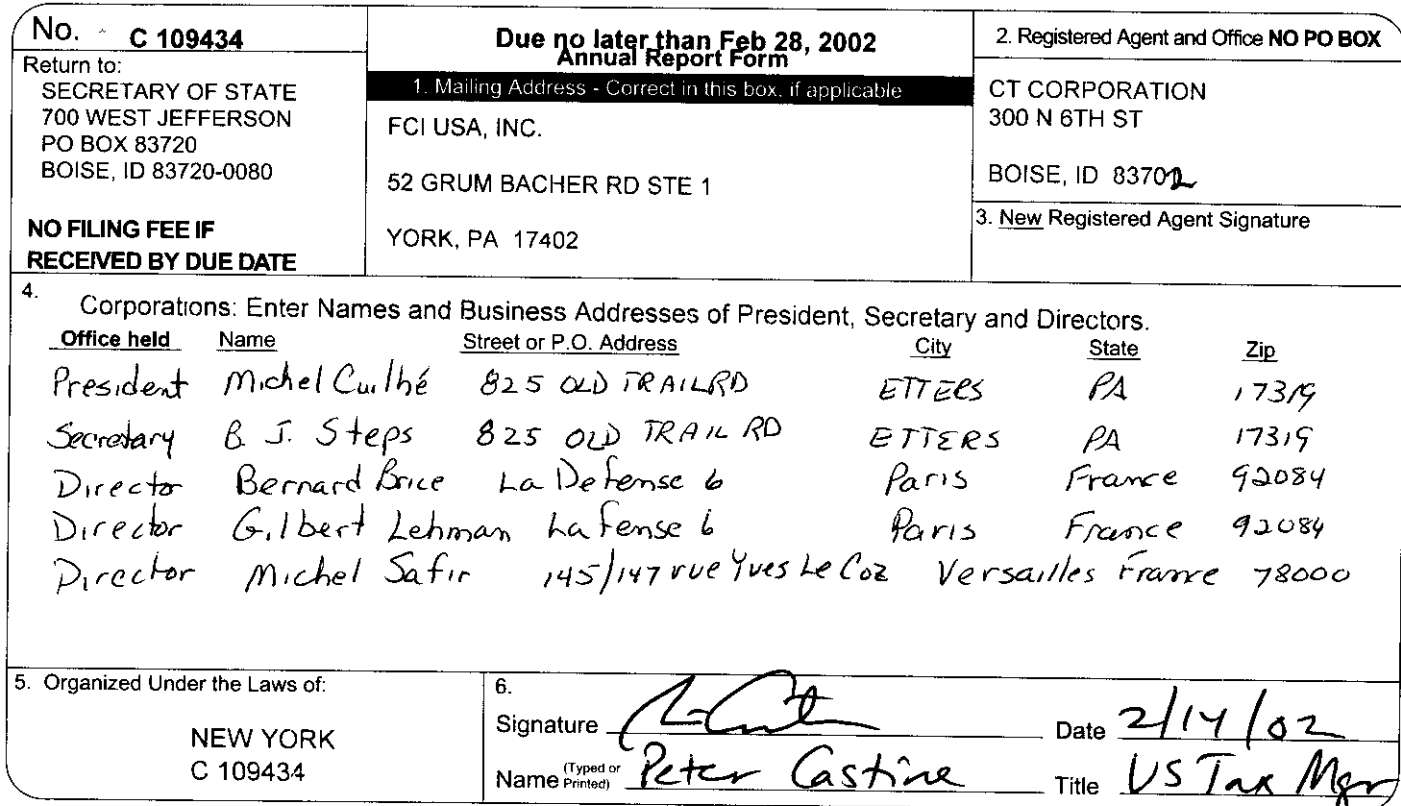 No. C 109434
Return to:
SECRETARY OF STATE
700 WEST JEFFERSON
PO BOX 83720
BOISE, ID 83720-0080
NO FILING FEE IF
RECEIVED BY DUE DATE
Due no later than Feb 28, 2002
Annual Report Form
1. Mailing Address - Correct in this box, if applicable
FCI USA, INC.
52 GRUM BACHER RD STE 1
YORK, PA 17402
2. Registered Agent and Office NO PO BOX
CT CORPORATION
300 N 6TH ST
BOISE, ID 83702
3. New Registered Agent Signature
4.
Corporations: Enter Names and Business Addresses of President, Secretary and Directors.
Office held Name Street or P.O. Address City State Zip
President Michel Cuilhé 825 OLD TRAIL RD ETTERS PA 17319
Secretary B. J. Steps 825 OLD TRAIL RD ETTERS PA 17319
Director Bernard Brice La Defense 6 Paris France 92084
Director Gilbert Lehman La fense 6 Paris France 92084
Director Michel Safir 145/147 rue Yves Le Coz Versailles France 78000
5. Organized Under the Laws of:
NEW YORK
C 109434
6.
Signature Date 2/14/02
Name (Typed or Printed) Peter Castine Title US Tax Mgr